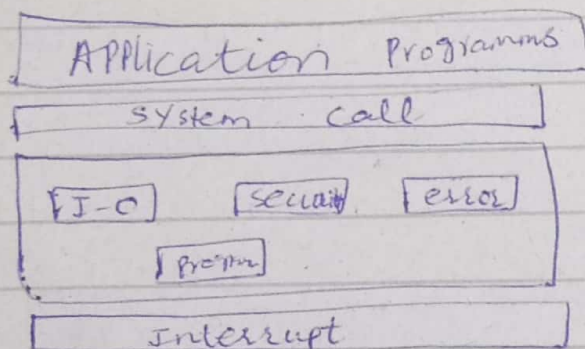 Application Programms
system call
I-O security error
Interrupt